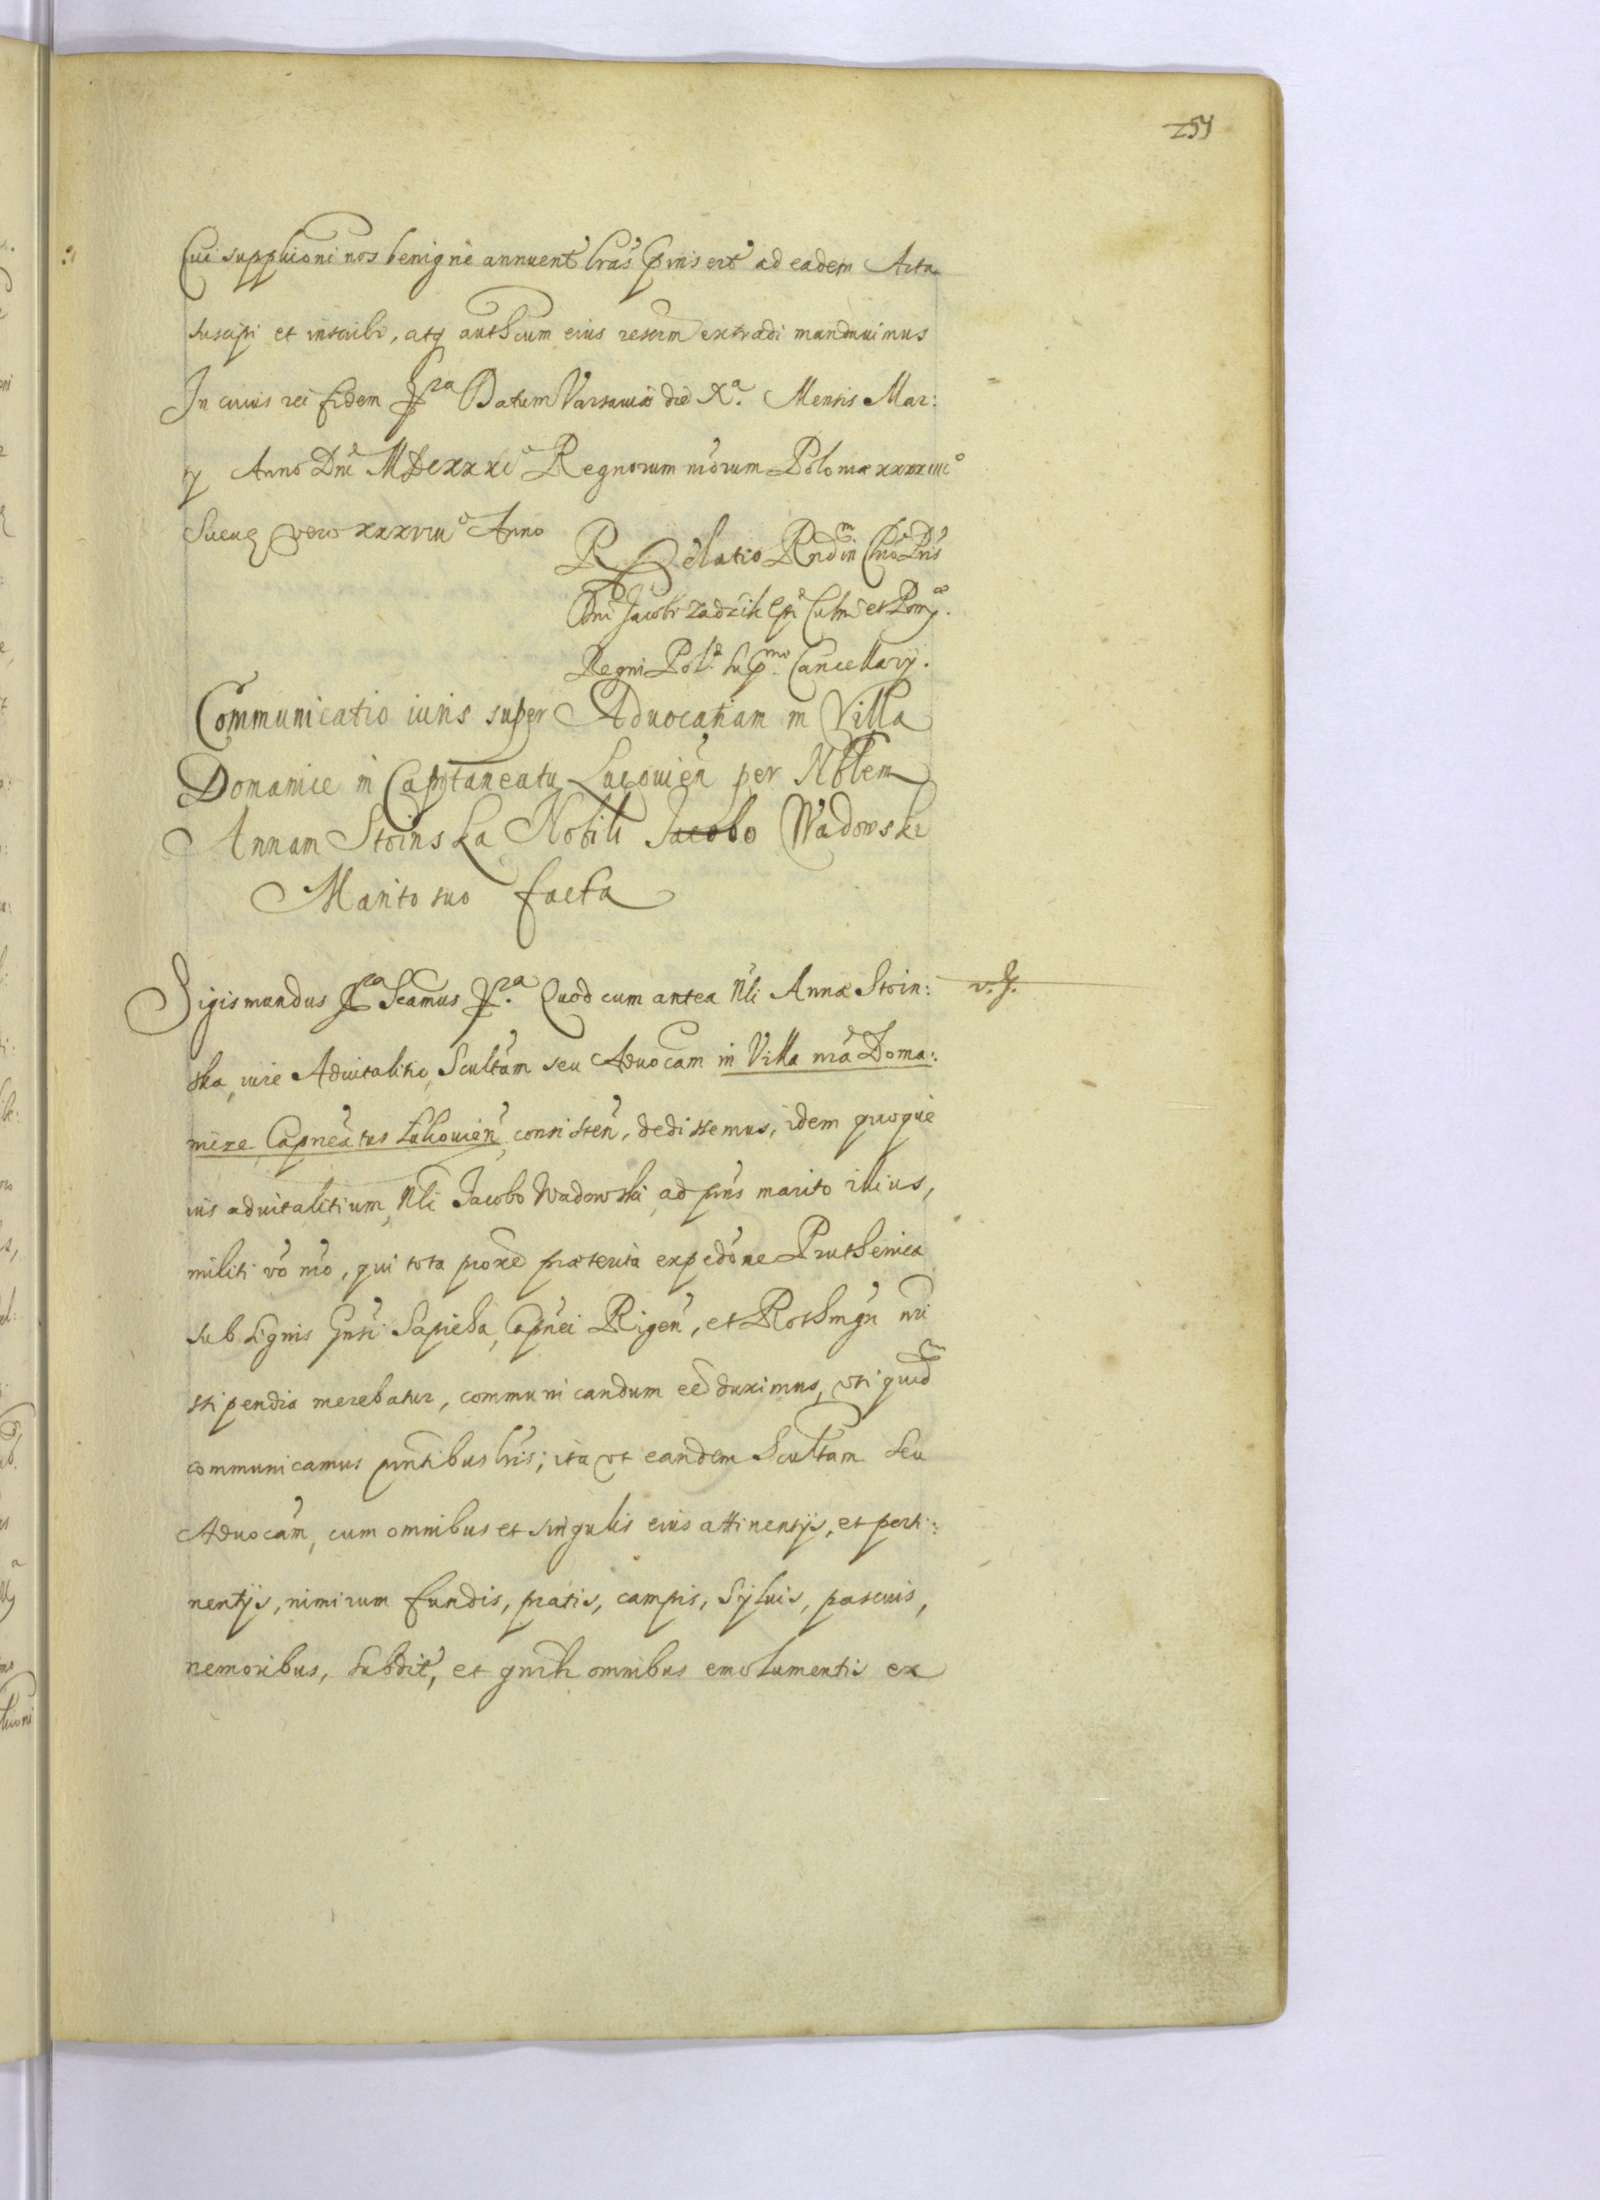 254
Cui supplicõni nos benigne annuent̃ lrãs p̃insert̃ ad eadem Acta
suscipi et inscribi, atq authcum eius rescrm̃ extradi mandauimus
In cuius rei fidem &ra Datum Varsauiæ die Xa. Mensis Mar:
Anno Dni MDCXXXI Regnorum nrõrum Poloniæ xxxxiiiio
Sueciæ vero xxxviiio Anno
Relatio Rndin Chrõ Pris
Dni Jacobi Zadzik Epi Culm et Pom.
Regni Pol. Supmo. Cancellarij.
Communicatio iuris super Aduocatiam in Villa
Domanice in Capitaneatu Lucouien̄ per Nblem
Annam Stoinska Nobili Jacobo Wadowski
Marito suo facta
Sigismundus &ra Scamus &ra. Quod cum antea Nli Annæ Stoin: v. J.
ska, iure Aduitalitio, Scultam̃ seu Aduocam in Villa nrã Doma:
nice Capneatus Lukouien̄, consisten̄, dedissemus, idem quoque
ius aduitalitium, Nli Jacobo Wadowski, ad prns̃ marito illius,
militi vo nrõ, qui tota proxe præterita expedõne Pruthenica
sub signis Gnsi Sapieha, Capnei Rigen̄, et Rothmgri nri
stipendia merebatur, communicandum eẽ duximus, vti quidm
communicamus prntibus lris; ita vt eandem Scultam seu
Aduocam̃, cum omnibus et singulis eius attinentijs, et perti:
nentijs, nimirum fundis, pratis, campis, syluis, pascuis,
nemoribus, subdit̃, et gnrli omnibus emolumentis ex